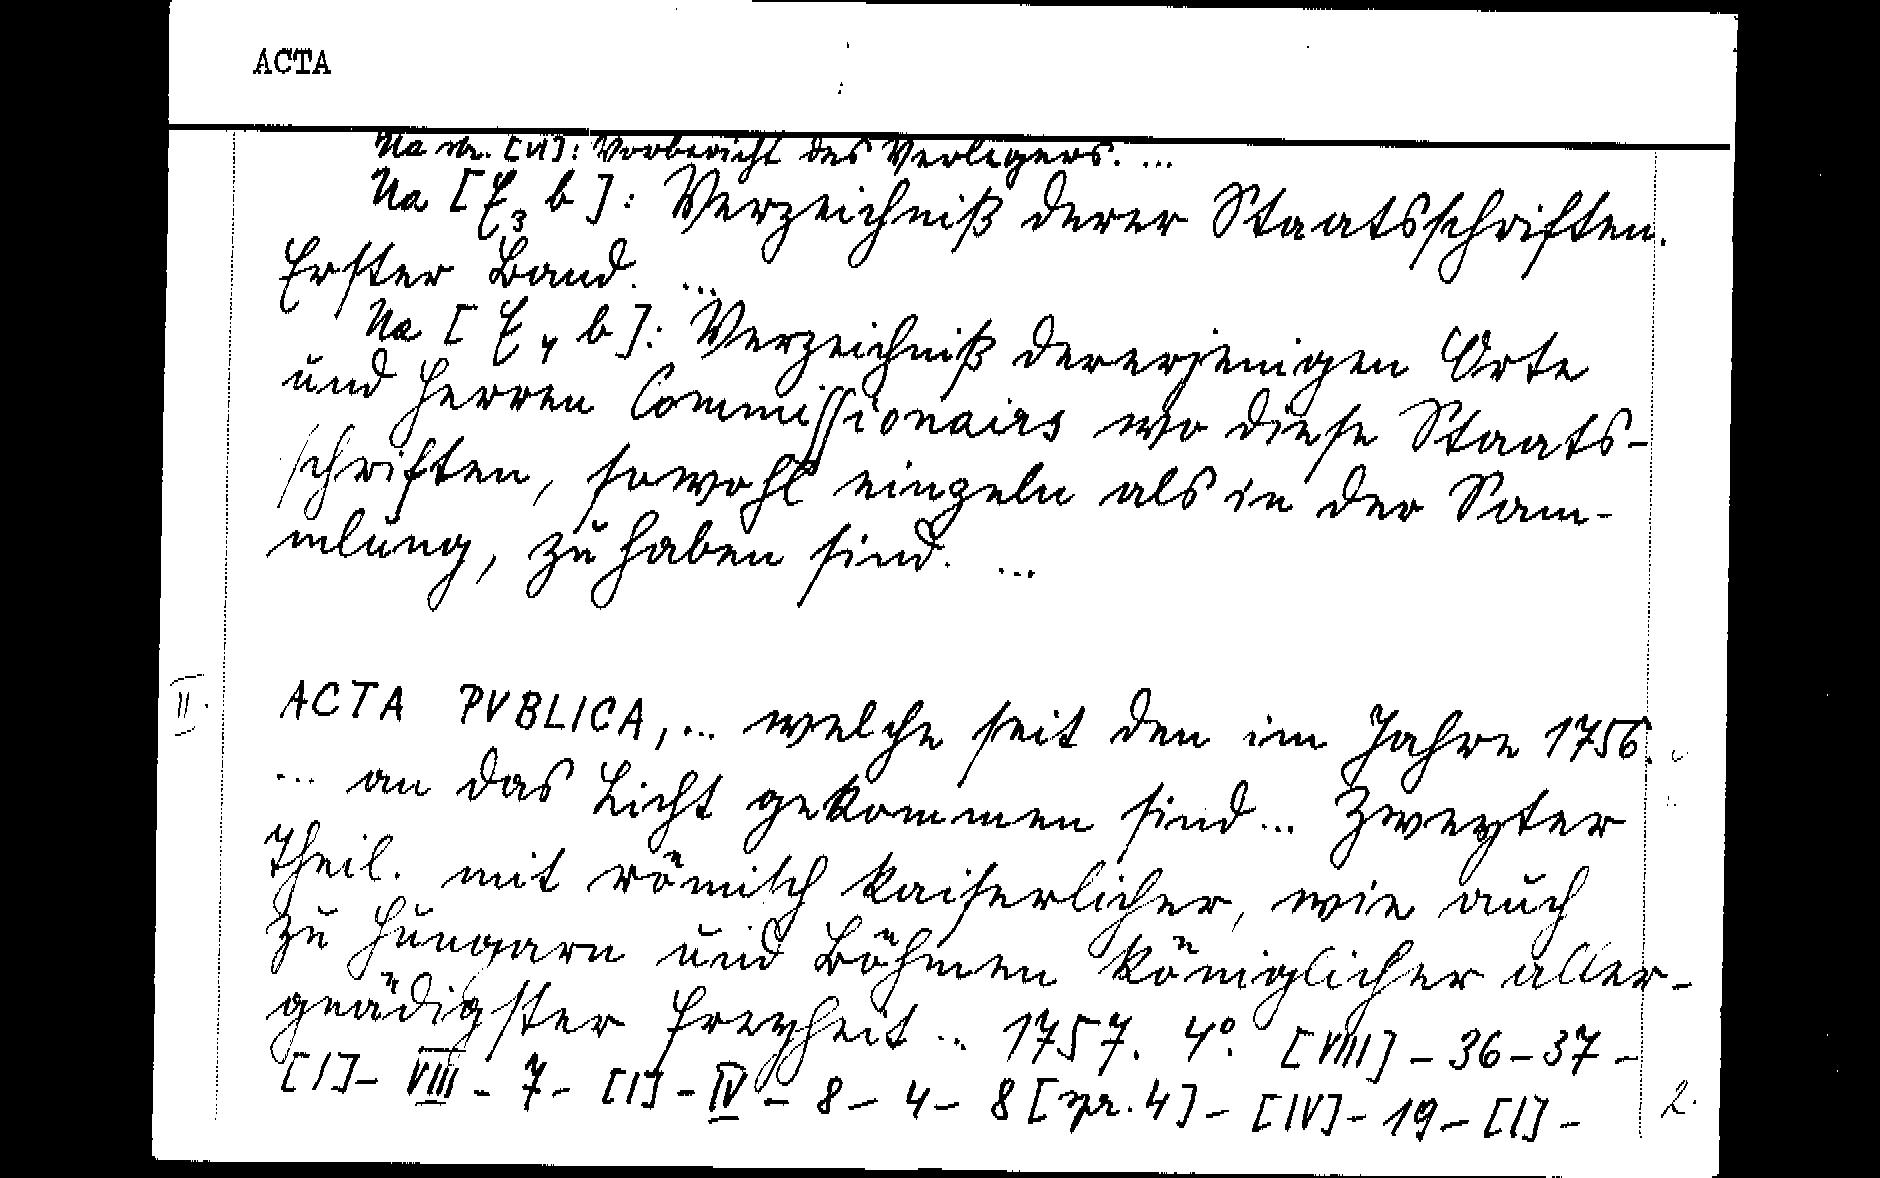 ACTA
Na str. [VI]: Vorbericht des Verlegers. ...
Na [E₃ b]: Verzeichniß derer Staatsschriften.
Erster Band. ...
Na [E₄ b]: Verzeichniß dererjenigen Orte
und Herren Commissionairs wo diese Staats-
schriften, sowohl einzeln als in der Sam-
mlung, zu haben sind. ...
II. ACTA PVBLICA,... welche seit den im Jahre 1756.
... an das Licht gekommen sind... Zweyter
Theil. mit römisch kaiserlicher, wie auch
zu Hungarn und Böhmen königlicher aller-
gnädigster Freyheit... 1757. 4°. [VIII] - 36 - 37 -
[I] - VIII - 7 - [I] - IV - 8 - 4 - 8 [spr. 4] - [IV] - 19 - [I] -
2.